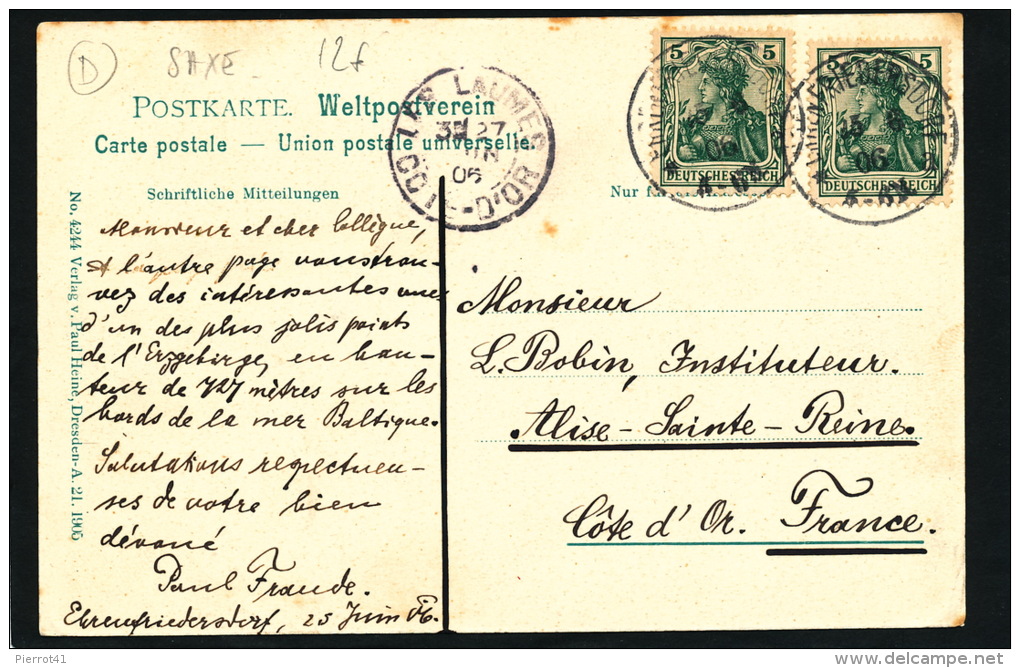 D
SAXE
12f
POSTKARTE. Weltpostverein
Carte postale — Union postale universelle.
LES LAUMES
27
06
COTE-D'OR
5 5
06
DEUTSCHES REICH
5
EHRENFRIEDERSDORF
06
DEUTSCHES REICH
Schriftliche Mitteilungen
Nur für
No. 4244 Verlag v. Paul Heine, Dresden-A. 21. 1905
Monsieur et cher Collègue,
A l'autre page vous trou-
vez des intéressantes vues
d'un des plus jolis points
de l'Erzgebirge, en hau-
teur de 727 mètres sur les
bords de la mer Baltique.
Salutations respectueu-
ses de votre bien
dévoué
Paul Fraude.
Ehrenfriedersdorf, 25 Juin 06.
Monsieur
L. Bobin, Instituteur.
Alise-Sainte-Reine.
Côte d'Or. France.
Pierrot41